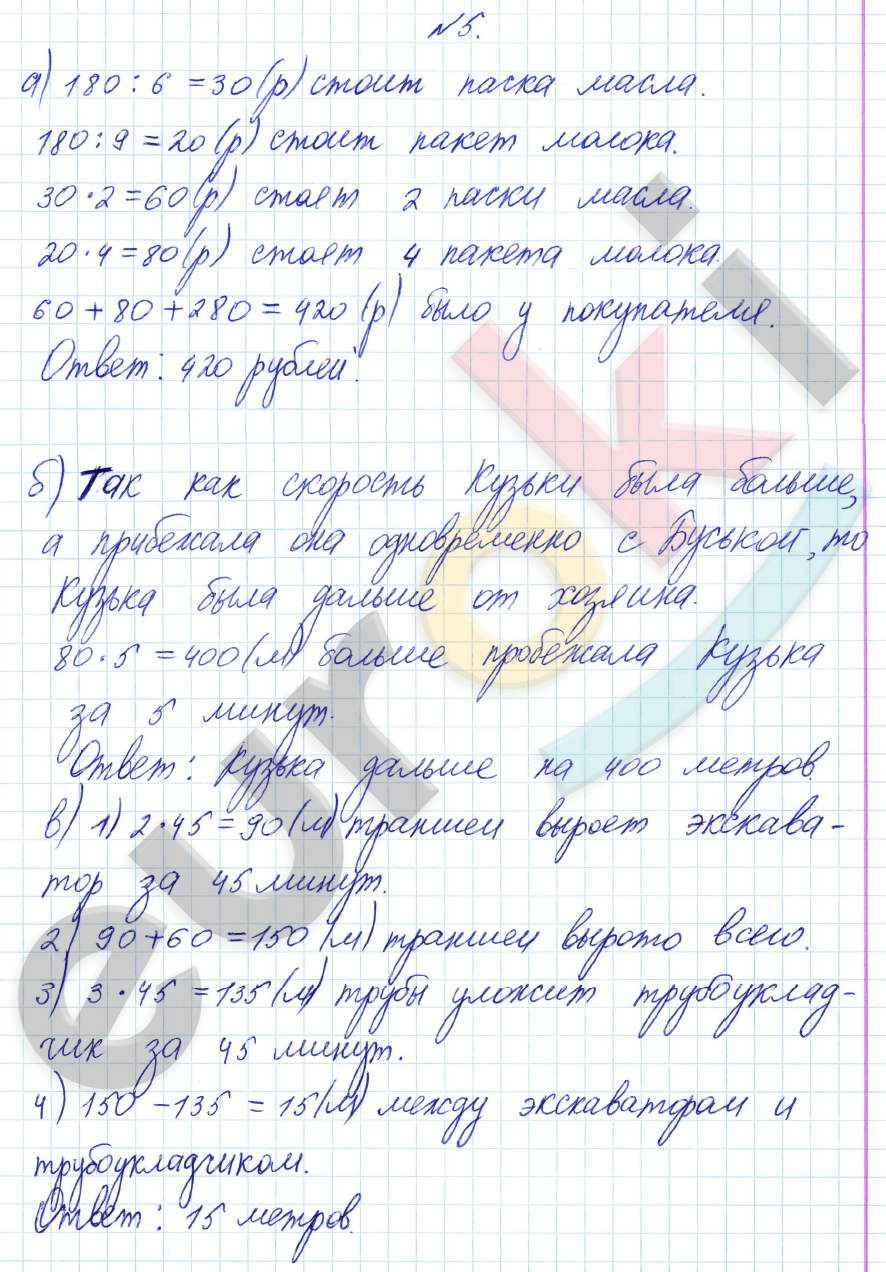 №5.
а) 180 : 6 = 30 (р) стоит паска масла.
180 : 9 = 20 (р) стоит пакет молока.
30 · 2 = 60 (р) стоят 2 паски масла.
20 · 4 = 80 (р) стоят 4 пакета молока.
60 + 80 + 280 = 420 (р) было у покупателя.
Ответ: 420 рублей.
б) Так как скорость Кузьки была больше,
а прибежала она одновременно с Буськой, то
Кузька была дальше от хозяина.
80 · 5 = 400 (м) больше пробежала Кузька
за 5 минут.
Ответ: Кузька дальше на 400 метров
в) 1) 2 · 45 = 90 (м) траншеи выроет экскава-
тор за 45 минут.
2) 90 + 60 = 150 (м) траншеи вырыто всего.
3) 3 · 45 = 135 (м) трубы уложит трубоуклад-
чик за 45 минут.
4) 150 - 135 = 15 (м) между экскаватором и
трубоукладчиком.
Ответ: 15 метров.
euroki